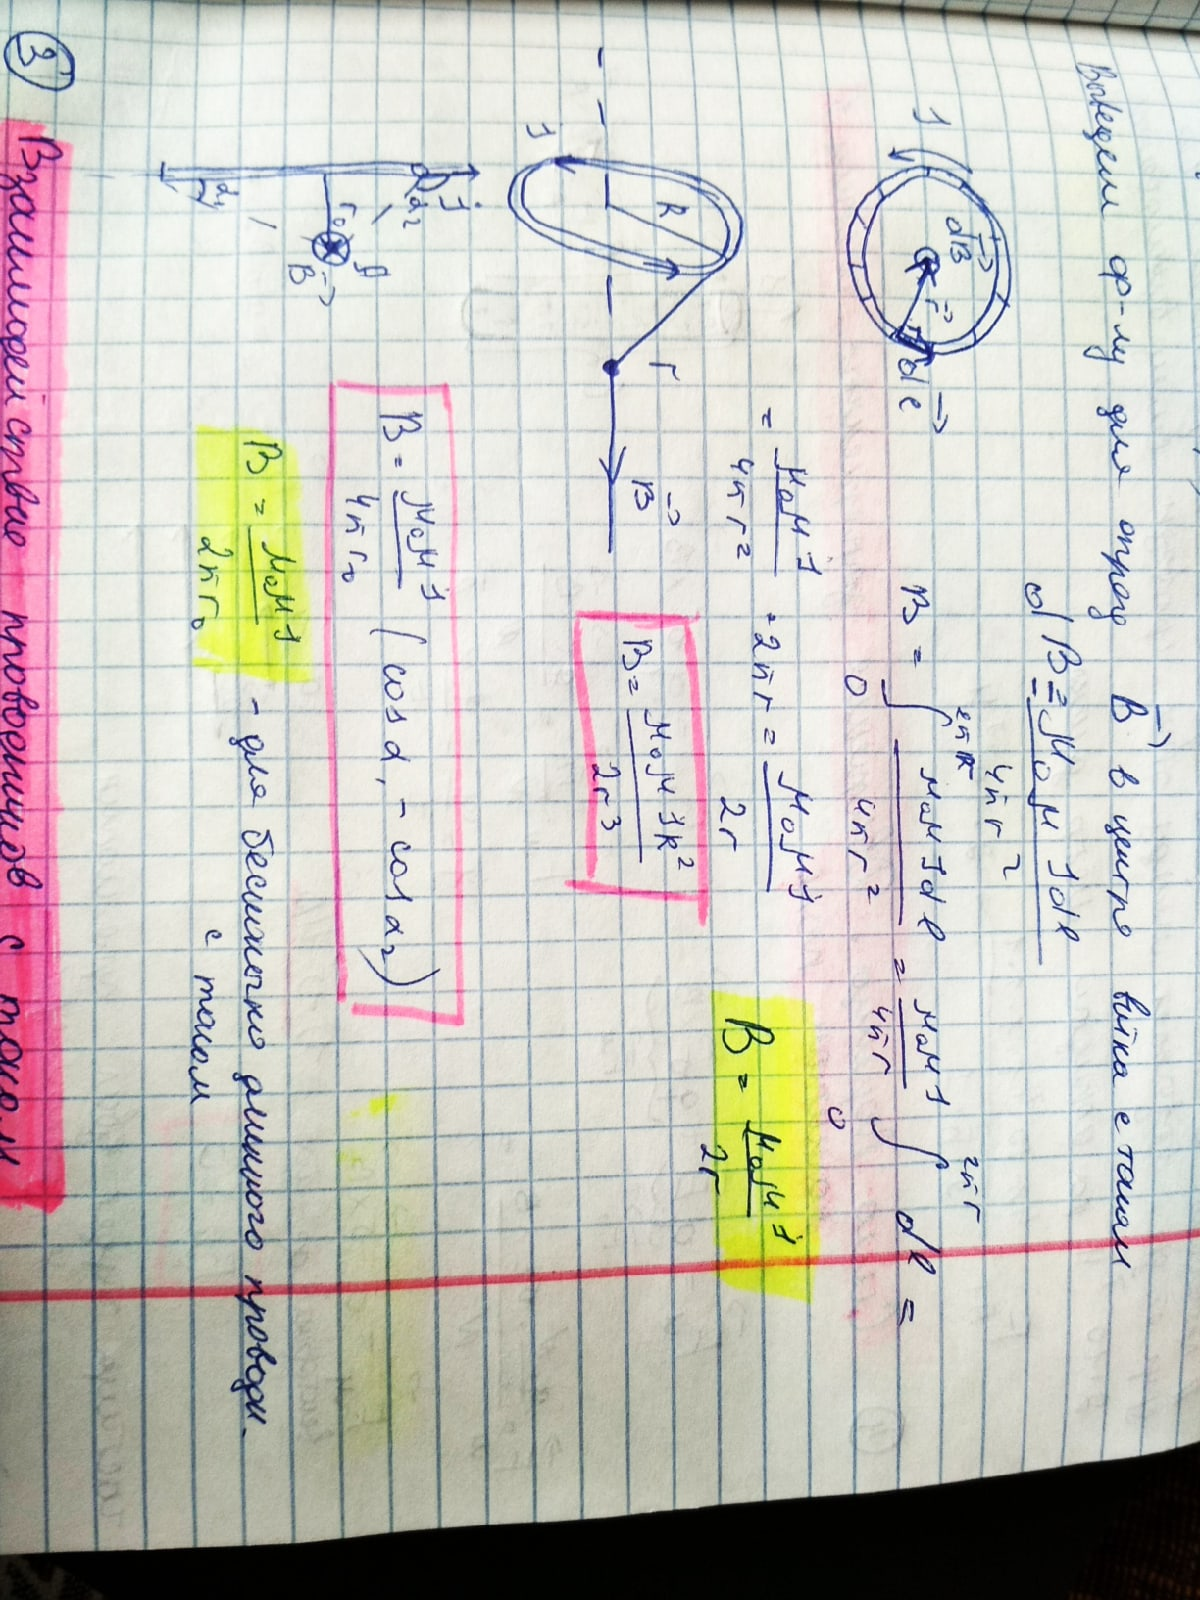 Выведем ф-лу для опред B в центре витка с током
dB = μ₀μ I dl
4πr²
I
dB
r
dl
B = ∫₀^2πR μ₀μ I dl / 4πr² = μ₀μ I / 4πr ∫₀^2πr dl =
= μ₀μ I / 4πr² · 2πr = μ₀μ I / 2r
B = μ₀μ I / 2r
I
R
r
B
B = μ₀μ I R² / 2r³
I
α₂
r₀
A
B
α₁
B = μ₀μ I / 4πr₀ (cos α₁ - cos α₂)
B = μ₀μ I / 2πr₀ - для бесконечно длинного проводн.
с током
3 Взаимодействие проводников с током